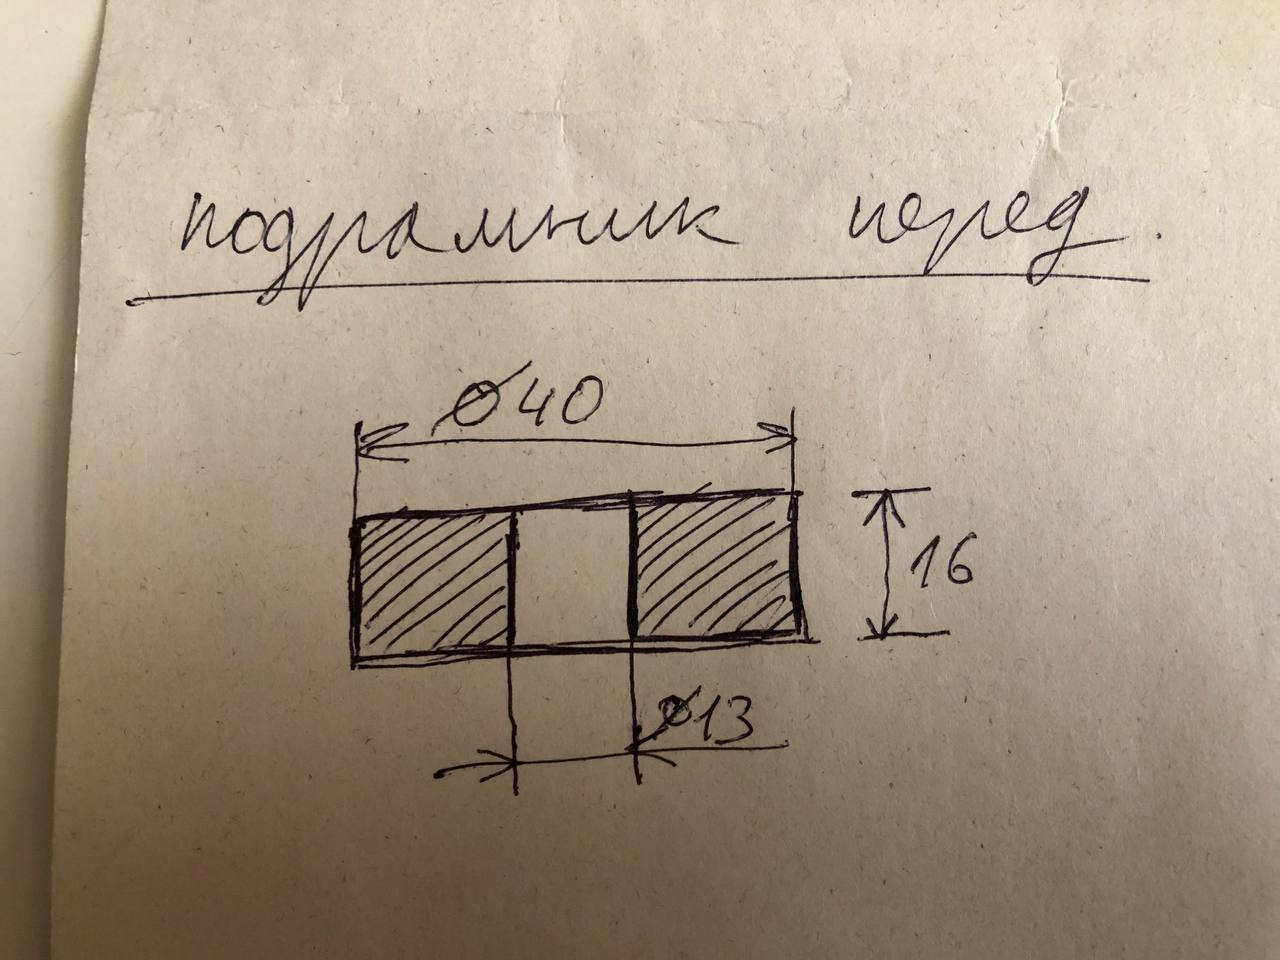 подрамник перед.
⌀40
16
⌀13